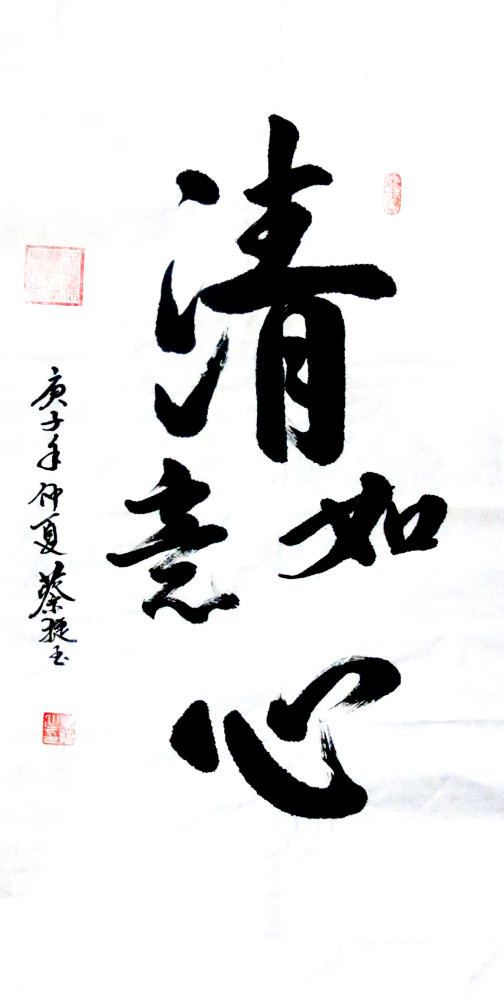 清心如意
庚子年仲夏蔡